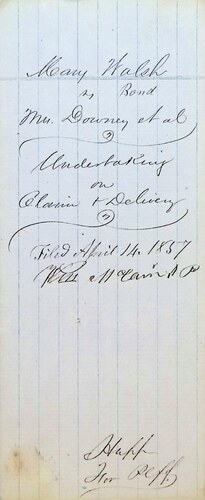 Mary Walsh
vs Bond
Mrs. Downey et al
Undertaking
on
Claim & Delivery
Filed April 14. 1857
J P
Huff
for Plff